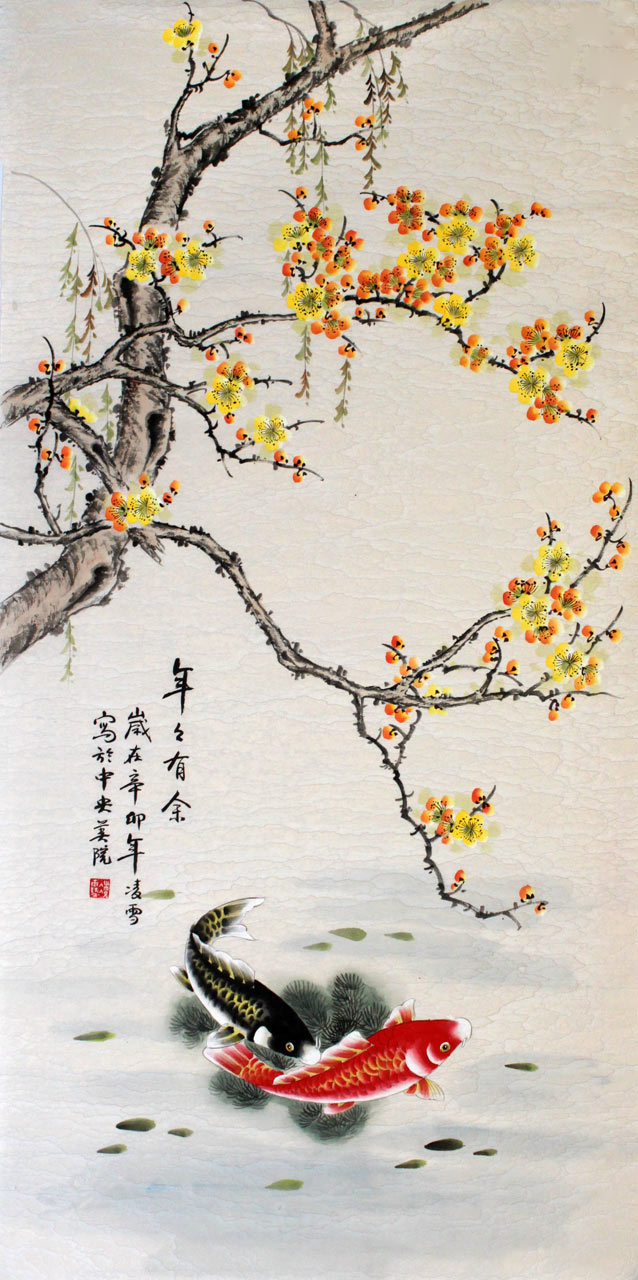 年々有余
歲在辛卯年凌雪
寫於中央美院